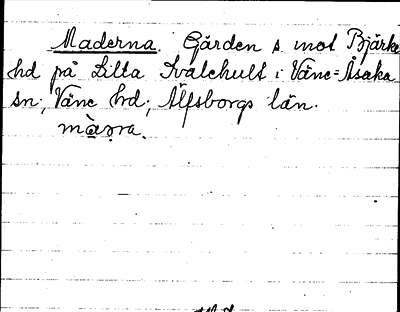 Maderna. Gärden s. mot Bjärke
hd på Lilla Svalehult i Väne-Åsaka
sn; Väne hd; Älfsborgs län.